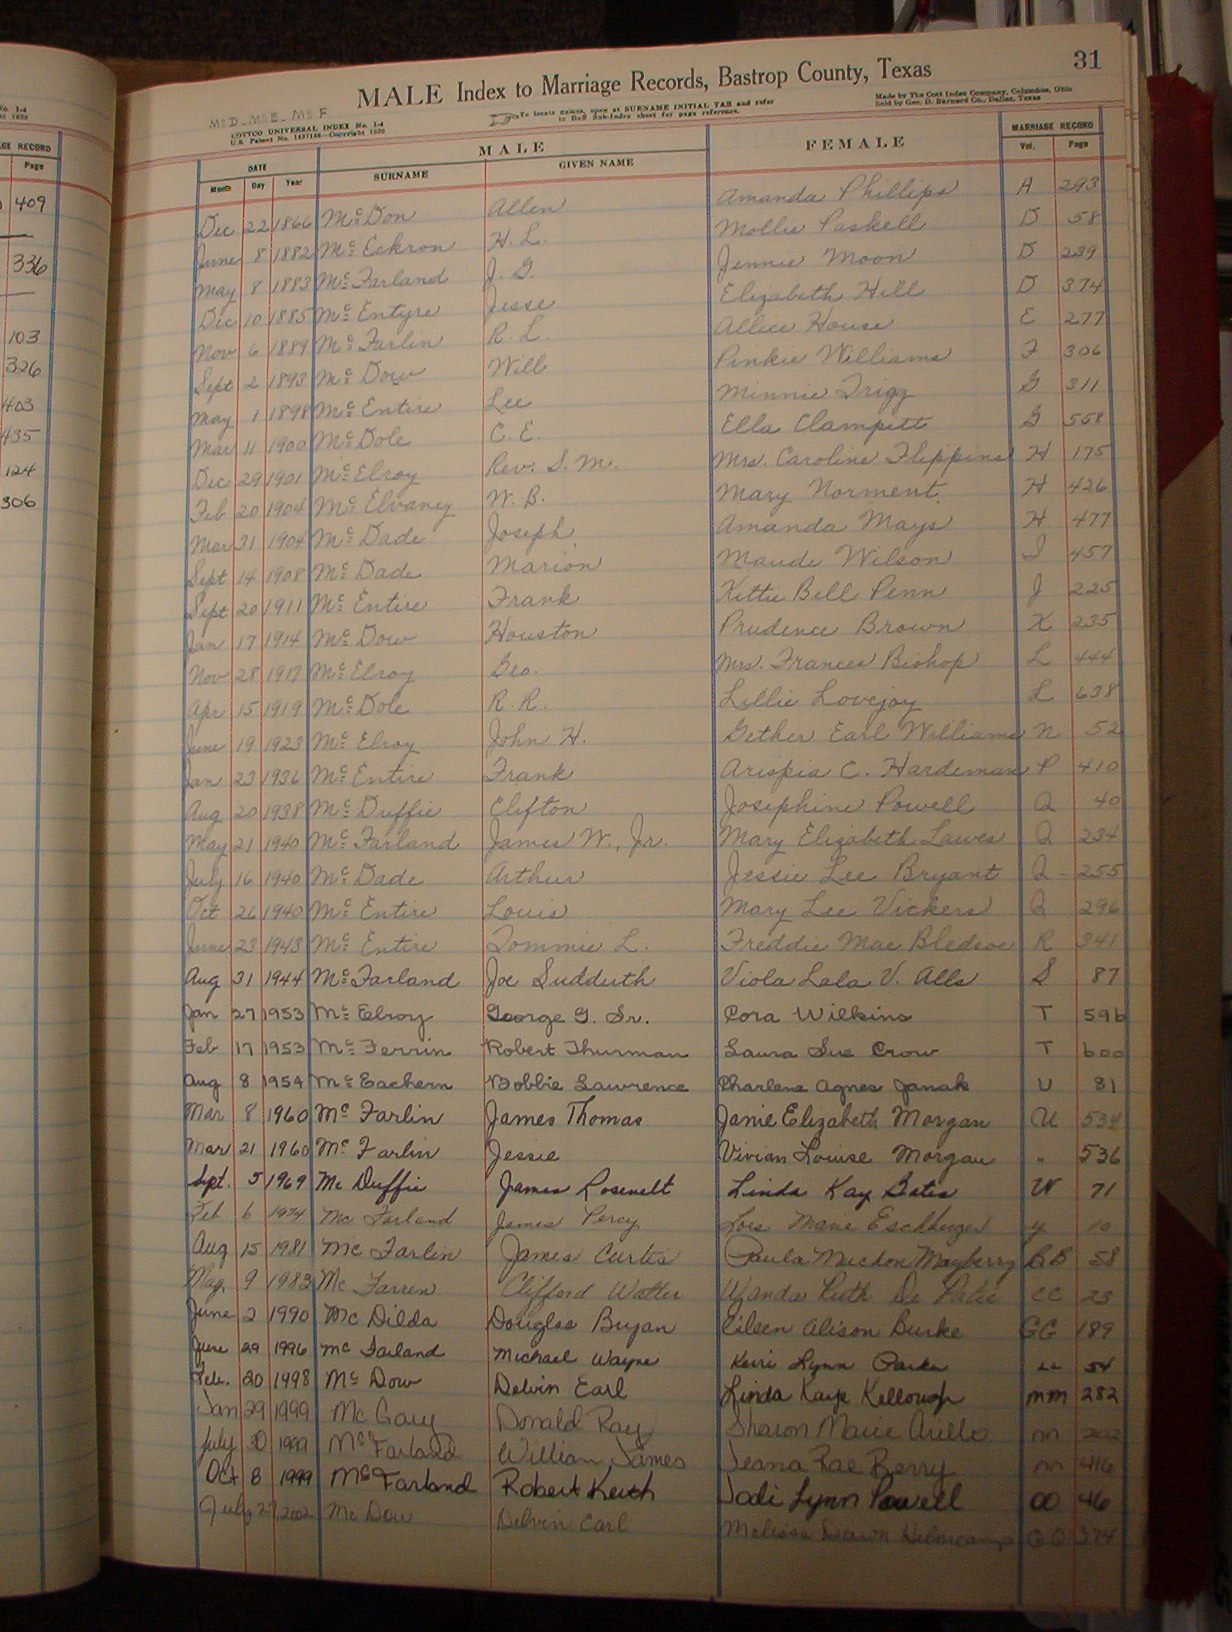 No. 1-4
ht 1888
GE RECORD
Page
409
336
103
326
403
435
124
306
31
MALE Index to Marriage Records, Bastrop County, Texas
McD - McE - McF
COTTCO UNIVERSAL INDEX No. 1-4
To locate names, open at SURNAME INITIAL TAB and refer
to Buff Sub-Index sheet for page reference.
Made by The Cott Index Company, Columbus, Ohio
Sold by Geo. D. Barnard Co., Dallas, Texas
DATE MALE FEMALE MARRIAGE RECORD
Month Day Year SURNAME GIVEN NAME Vol. Page
Dec 22 1866 McDon Allen Amanda Phillips A 293
June 8 1882 McEckron H. L. Mollie Paskell D 58
May 8 1883 McFarland J. G. Jennie Moon D 239
Dec 10 1885 McEntyre Jesse Elizabeth Hill D 374
Nov 6 1889 McFarlin R. L. Allice House E 277
Sept 2 1893 McDow Will Pinkie Williams F 306
May 1 1898 McEntire Lee Minnie Trigg G 311
Mar 11 1900 McDole C. E. Ella Clampitt G 558
Dec 29 1901 McElroy Rev. S. M. Mrs. Caroline Flippins H 175
Feb 20 1904 McElvaney W. B. Mary Norment H 426
Mar 31 1904 McDade Joseph Amanda Mays H 477
Sept 14 1908 McDade Marion Maude Wilson I 457
Sept 20 1911 McEntire Frank Kittie Bell Penn J 225
Jan 17 1914 McDow Houston Prudence Brown K 235
Nov 28 1917 McElroy Geo. Mrs. Frances Bishop L 444
Apr 15 1919 McDole R. R. Lillie Lovejoy L 638
June 19 1923 McElroy John H. Gether Earl Williams N 52
Jan 23 1936 McEntire Frank Arispia C. Hardeman P 410
Aug 20 1938 McDuffie Clifton Josephine Powell Q 40
May 21 1940 McFarland James W., Jr. Mary Elizabeth Lawes Q 234
July 16 1940 McDade Arthur Jessie Lee Bryant Q - 255
Oct 26 1940 McEntire Louis Mary Lee Vickers Q 296
June 23 1943 McEntire Tommie L. Freddie Mae Bledsoe R 341
Aug 31 1944 McFarland Joe Sudduth Viola Lala V. Alls S 87
Jan 27 1953 McElroy George G. Sr. Cora Wilkins T 596
Feb 17 1953 McFerrin Robert Thurman Laura Sue Crow T 600
Aug 8 1954 McEachern Bobbie Lawrence Charlene Agnes Janak U 31
Mar 8 1960 McFarlin James Thomas Janie Elizabeth Morgan U
Mar 21 1960 McFarlin Jessie Vivian Louise Morgan " 536
Sept. 5 1969 McDuffie James Rosevelt Linda Kay Bates W 71
Feb 6 1974 McFarland James Percy Lois Marie Y 10
Aug 15 1981 McFarlin James Curtis Paula Mayberry BB 58
May 9 1983 McFarren Clifford Walter Wanda Ruth De CC 23
June 2 1990 McDilda Douglas Bryan Eileen Alison Burke GG 189
June 29 1996 McFarland Michael Wayne Kerri Lynn Parker LL 54
Feb. 20 1998 McDow Delvin Earl Linda Kaye Kellough MM 282
Jan 29 1999 McGary Donald Ray Sharon Marie
July 30 1999 McFarland William James Jeana Rae Berry 416
Oct 8 1999 McFarland Robert Keith Jodi Lynn Powell OO 46
July 27, 2002 McDow Delvin Earl Melissa Dawn QQ 374